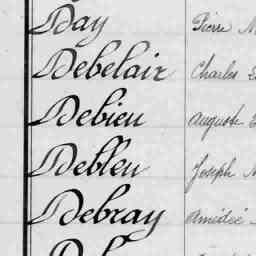 Day Pierre
Debelair Charles
Debieu Auguste
Debleu Joseph
Debray Amédée